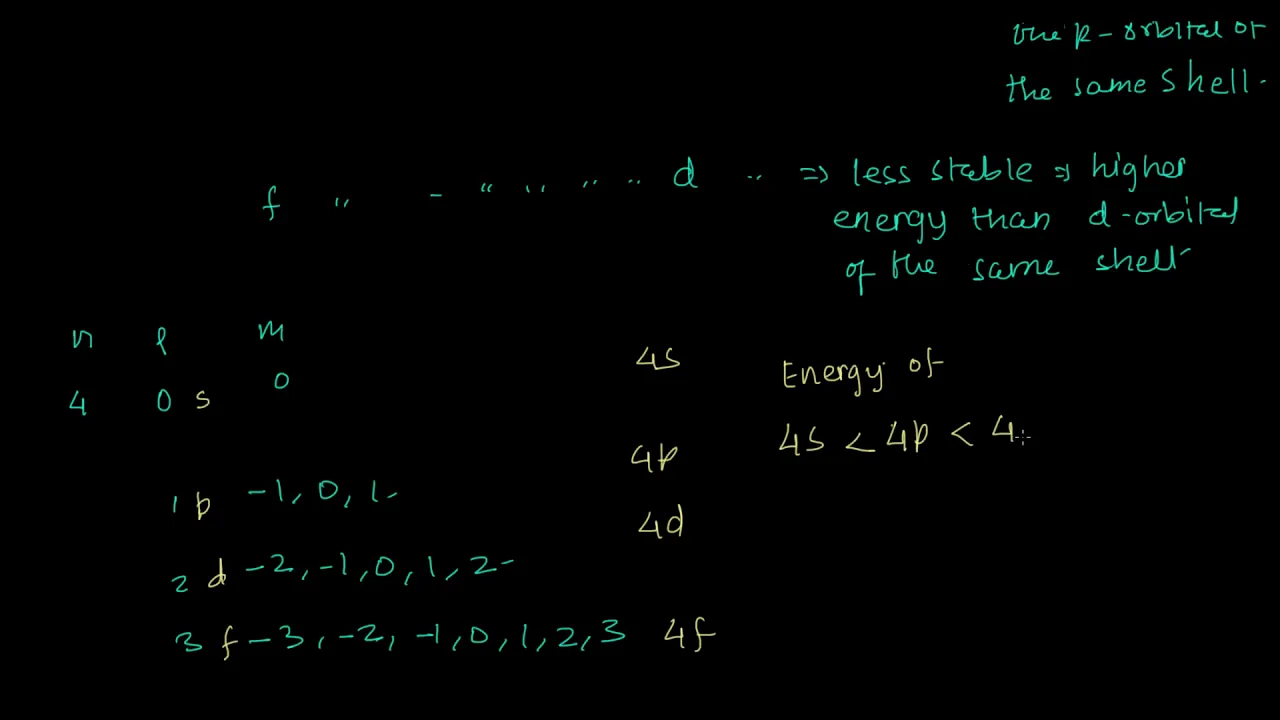 the p-orbital of
the same shell.
f " - " " " " d " => less stable => higher
energy than d-orbital
of the same shell
n l m
4 0 s 0
4s
Energy of
4s < 4p < 4
4p
1 p -1, 0, 1
4d
2 d -2, -1, 0, 1, 2
3 f -3, -2, -1, 0, 1, 2, 3 4f